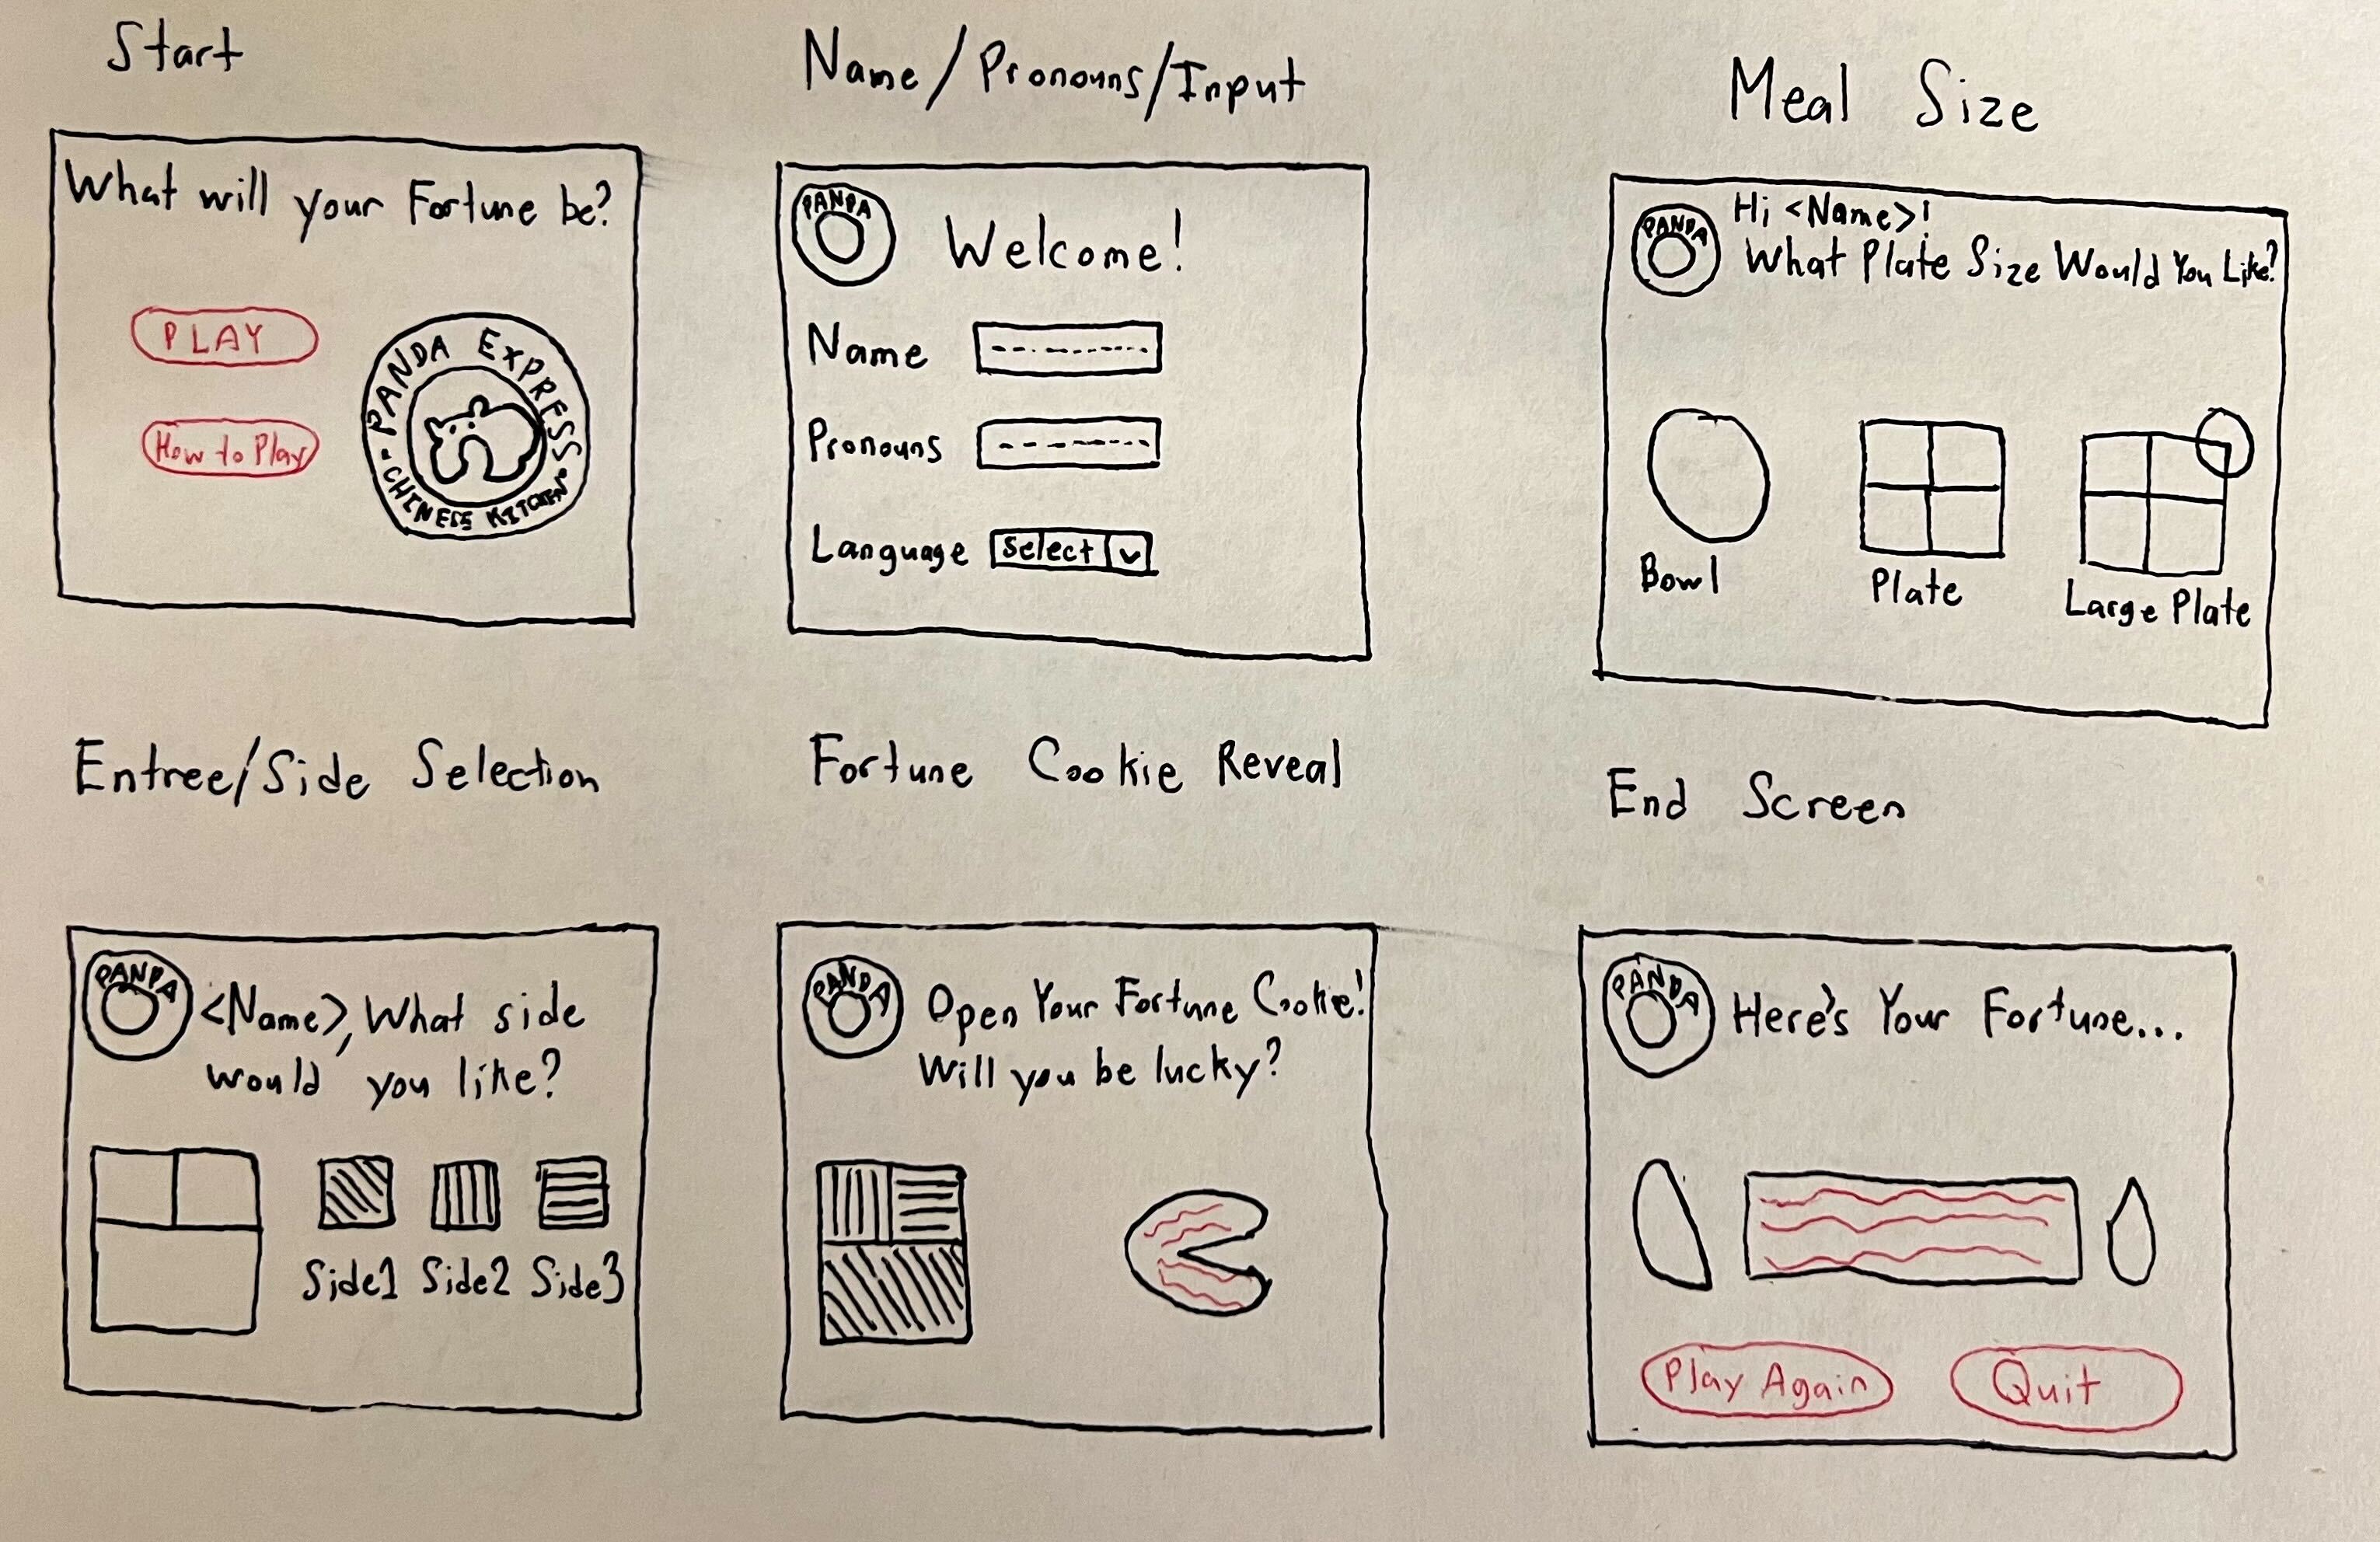 Start
What will your Fortune be?
PLAY
How to Play
PANDA EXPRESS
CHINESE KITCHEN
Name/Pronouns/Input
PANDA
Welcome!
Name
Pronouns
Language Select
Meal Size
PANDA
Hi <Name>!
What Plate Size Would You Like?
Bowl
Plate
Large Plate
Entree/Side Selection
PANDA
<Name>, What side
would you like?
Side1 Side2 Side3
Fortune Cookie Reveal
PANDA
Open Your Fortune Cookie!
Will you be lucky?
End Screen
PANDA
Here's Your Fortune...
Play Again
Quit